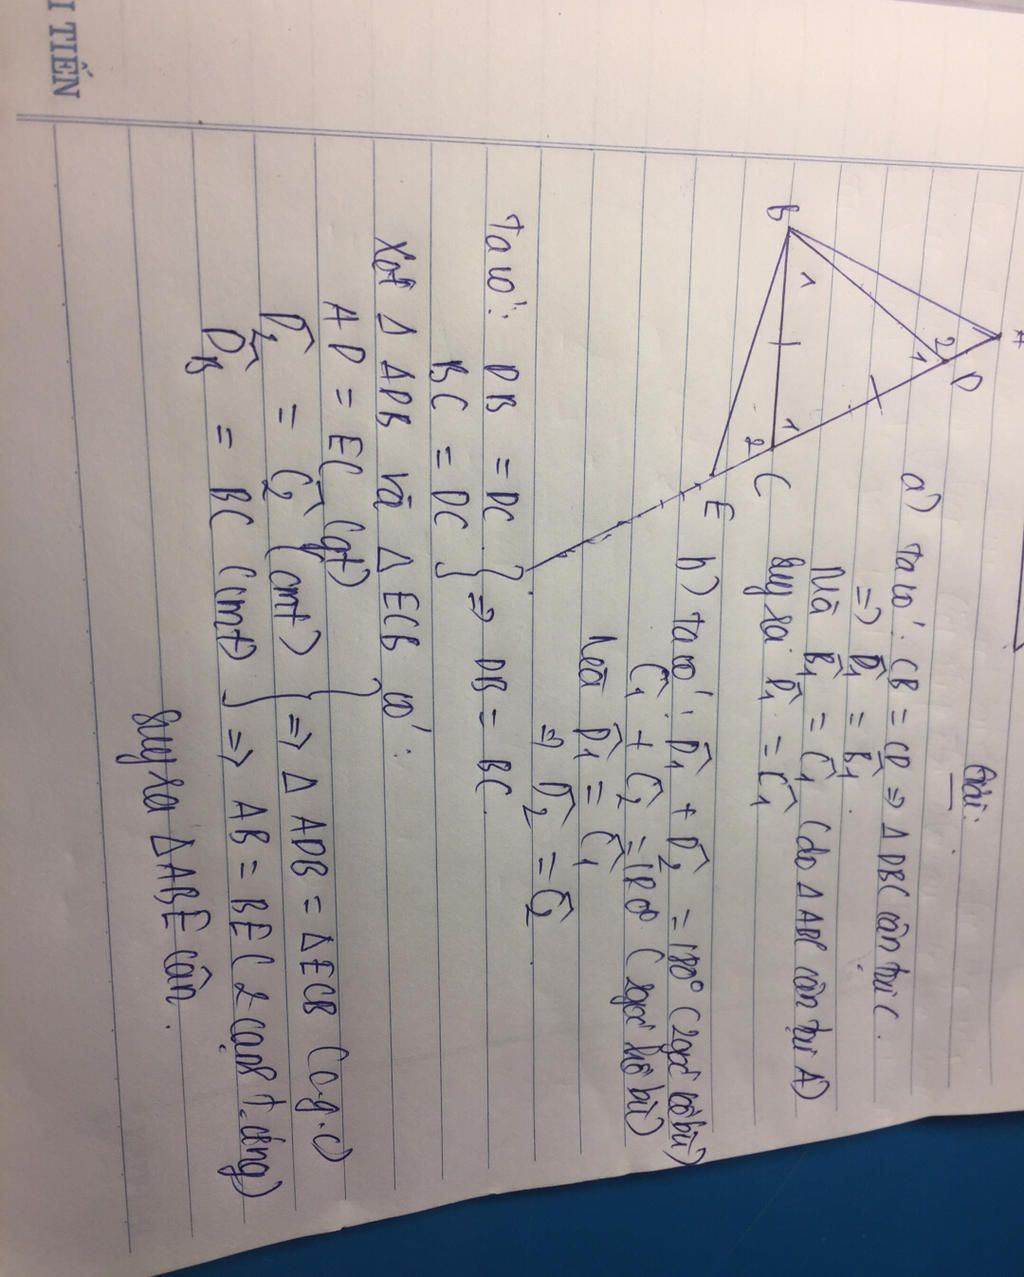 I TIẾN
Giải:
A
D
B
C
E
1
2
1
1
2
a) Ta có: CB = CD ⇒ Δ DBC cân tại C.
⇒ D̂₁ = B̂₁.
Mà B̂₁ = Ĉ₁ (do Δ ABC cân tại A)
suy ra D̂₁ = Ĉ₁
b) Ta có: D̂₁ + D̂₂ = 180° (2 góc kề bù)
Ĉ₁ + Ĉ₂ = 180 (2 góc kề bù)
Mà D̂₁ = Ĉ₁
⇒ D̂₂ = Ĉ₂
Ta có: DB = DC } ⇒ DB = BC.
BC = DC
Xét Δ ADB và Δ ECB có:
AD = EC (gt)
D̂₂ = Ĉ₂ (cmt) } ⇒ Δ ADB = Δ ECB (c.g.c)
DB = BC (cmt) ⇒ AB = BE (2 cạnh t.ứng)
suy ra Δ ABE cân.